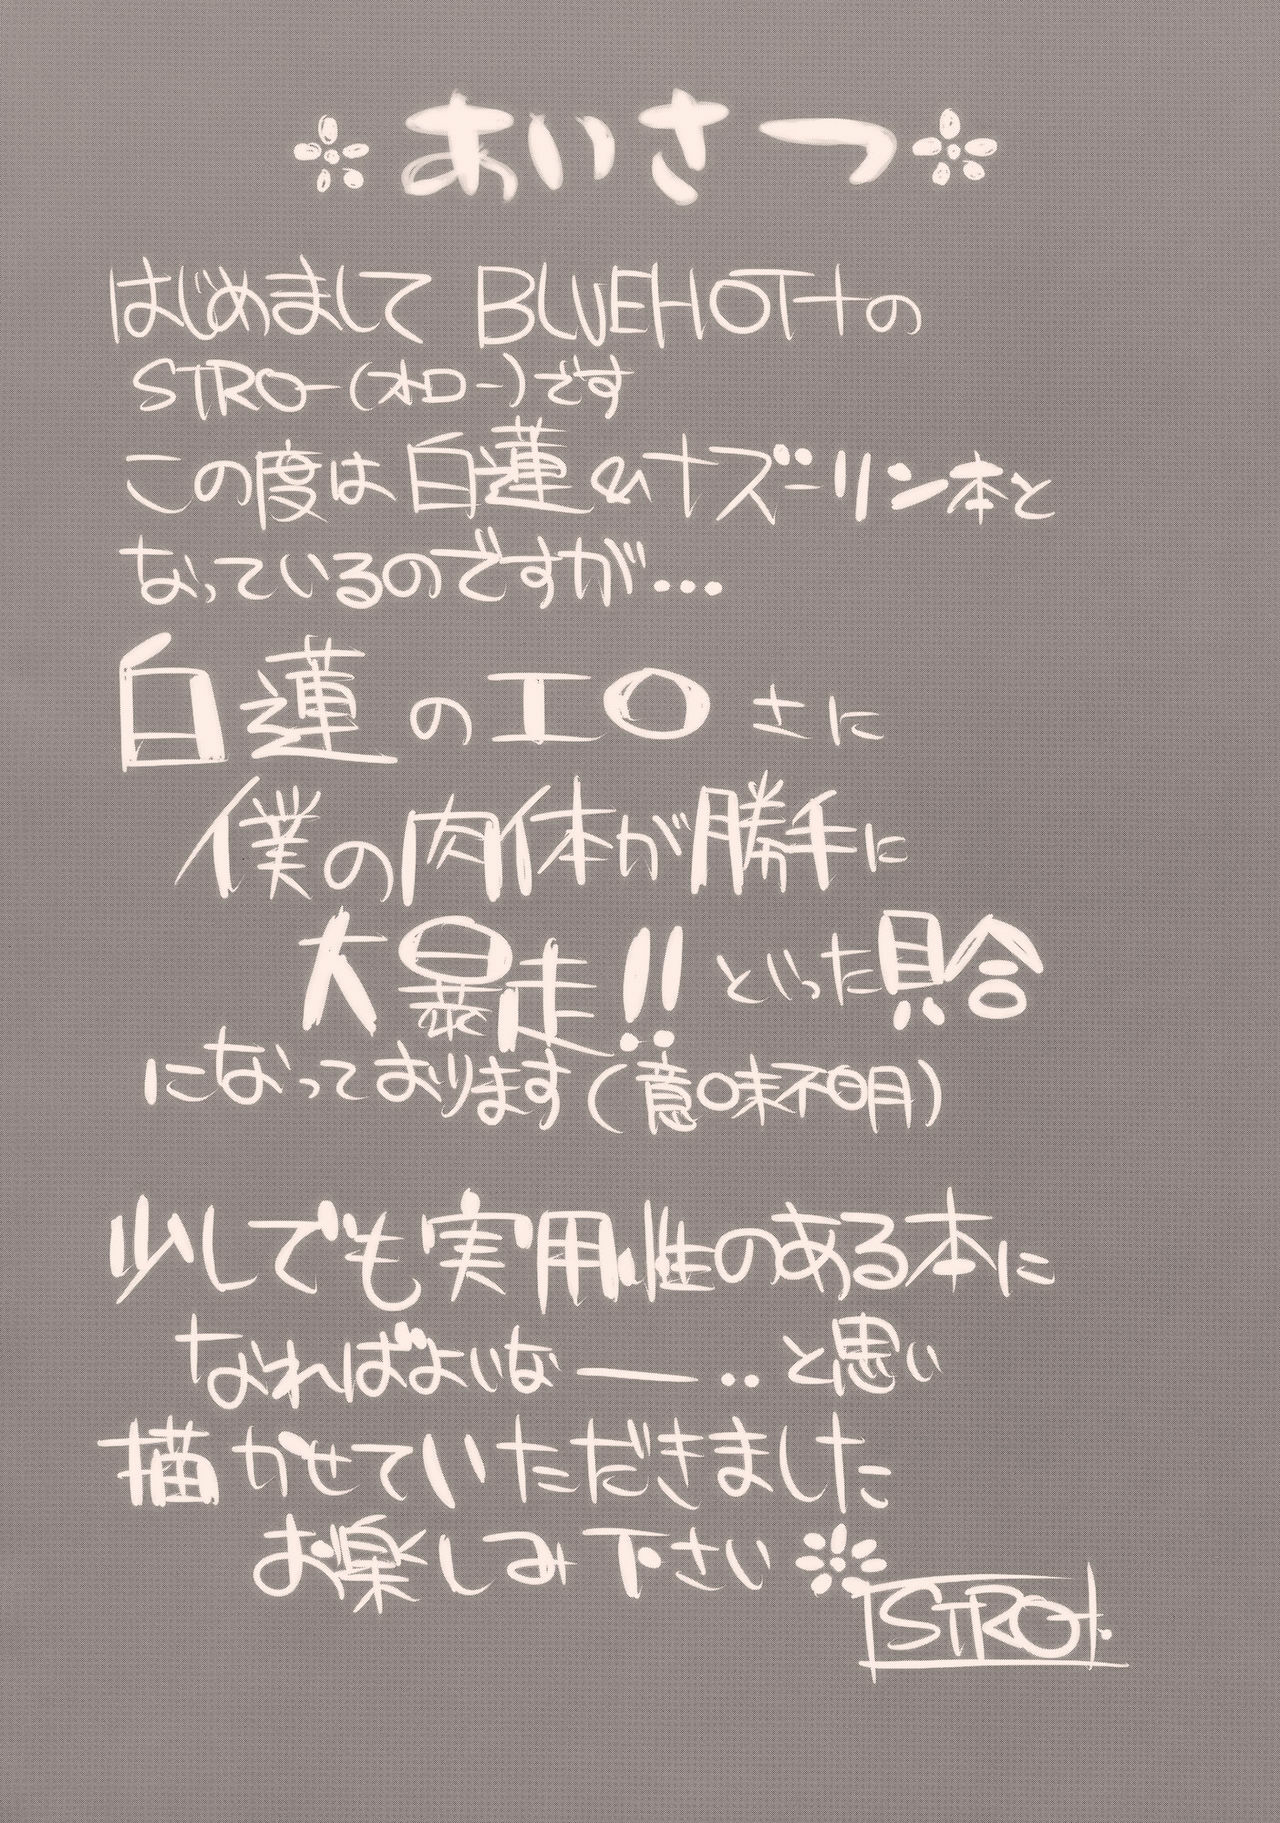 あいさつ
はじめまして BLUEHOTTの
STRO-(オロー)です
この度は白蓮&ナズーリン本と
なっているのですが…
白蓮のエロさに
僕の肉体が勝手に
大暴走!!といった具合
になっております(意味不明)
少しでも実用性のある本に
なればよいな――‥と思い
描かせていただきました
お楽しみ下さい
STRO-